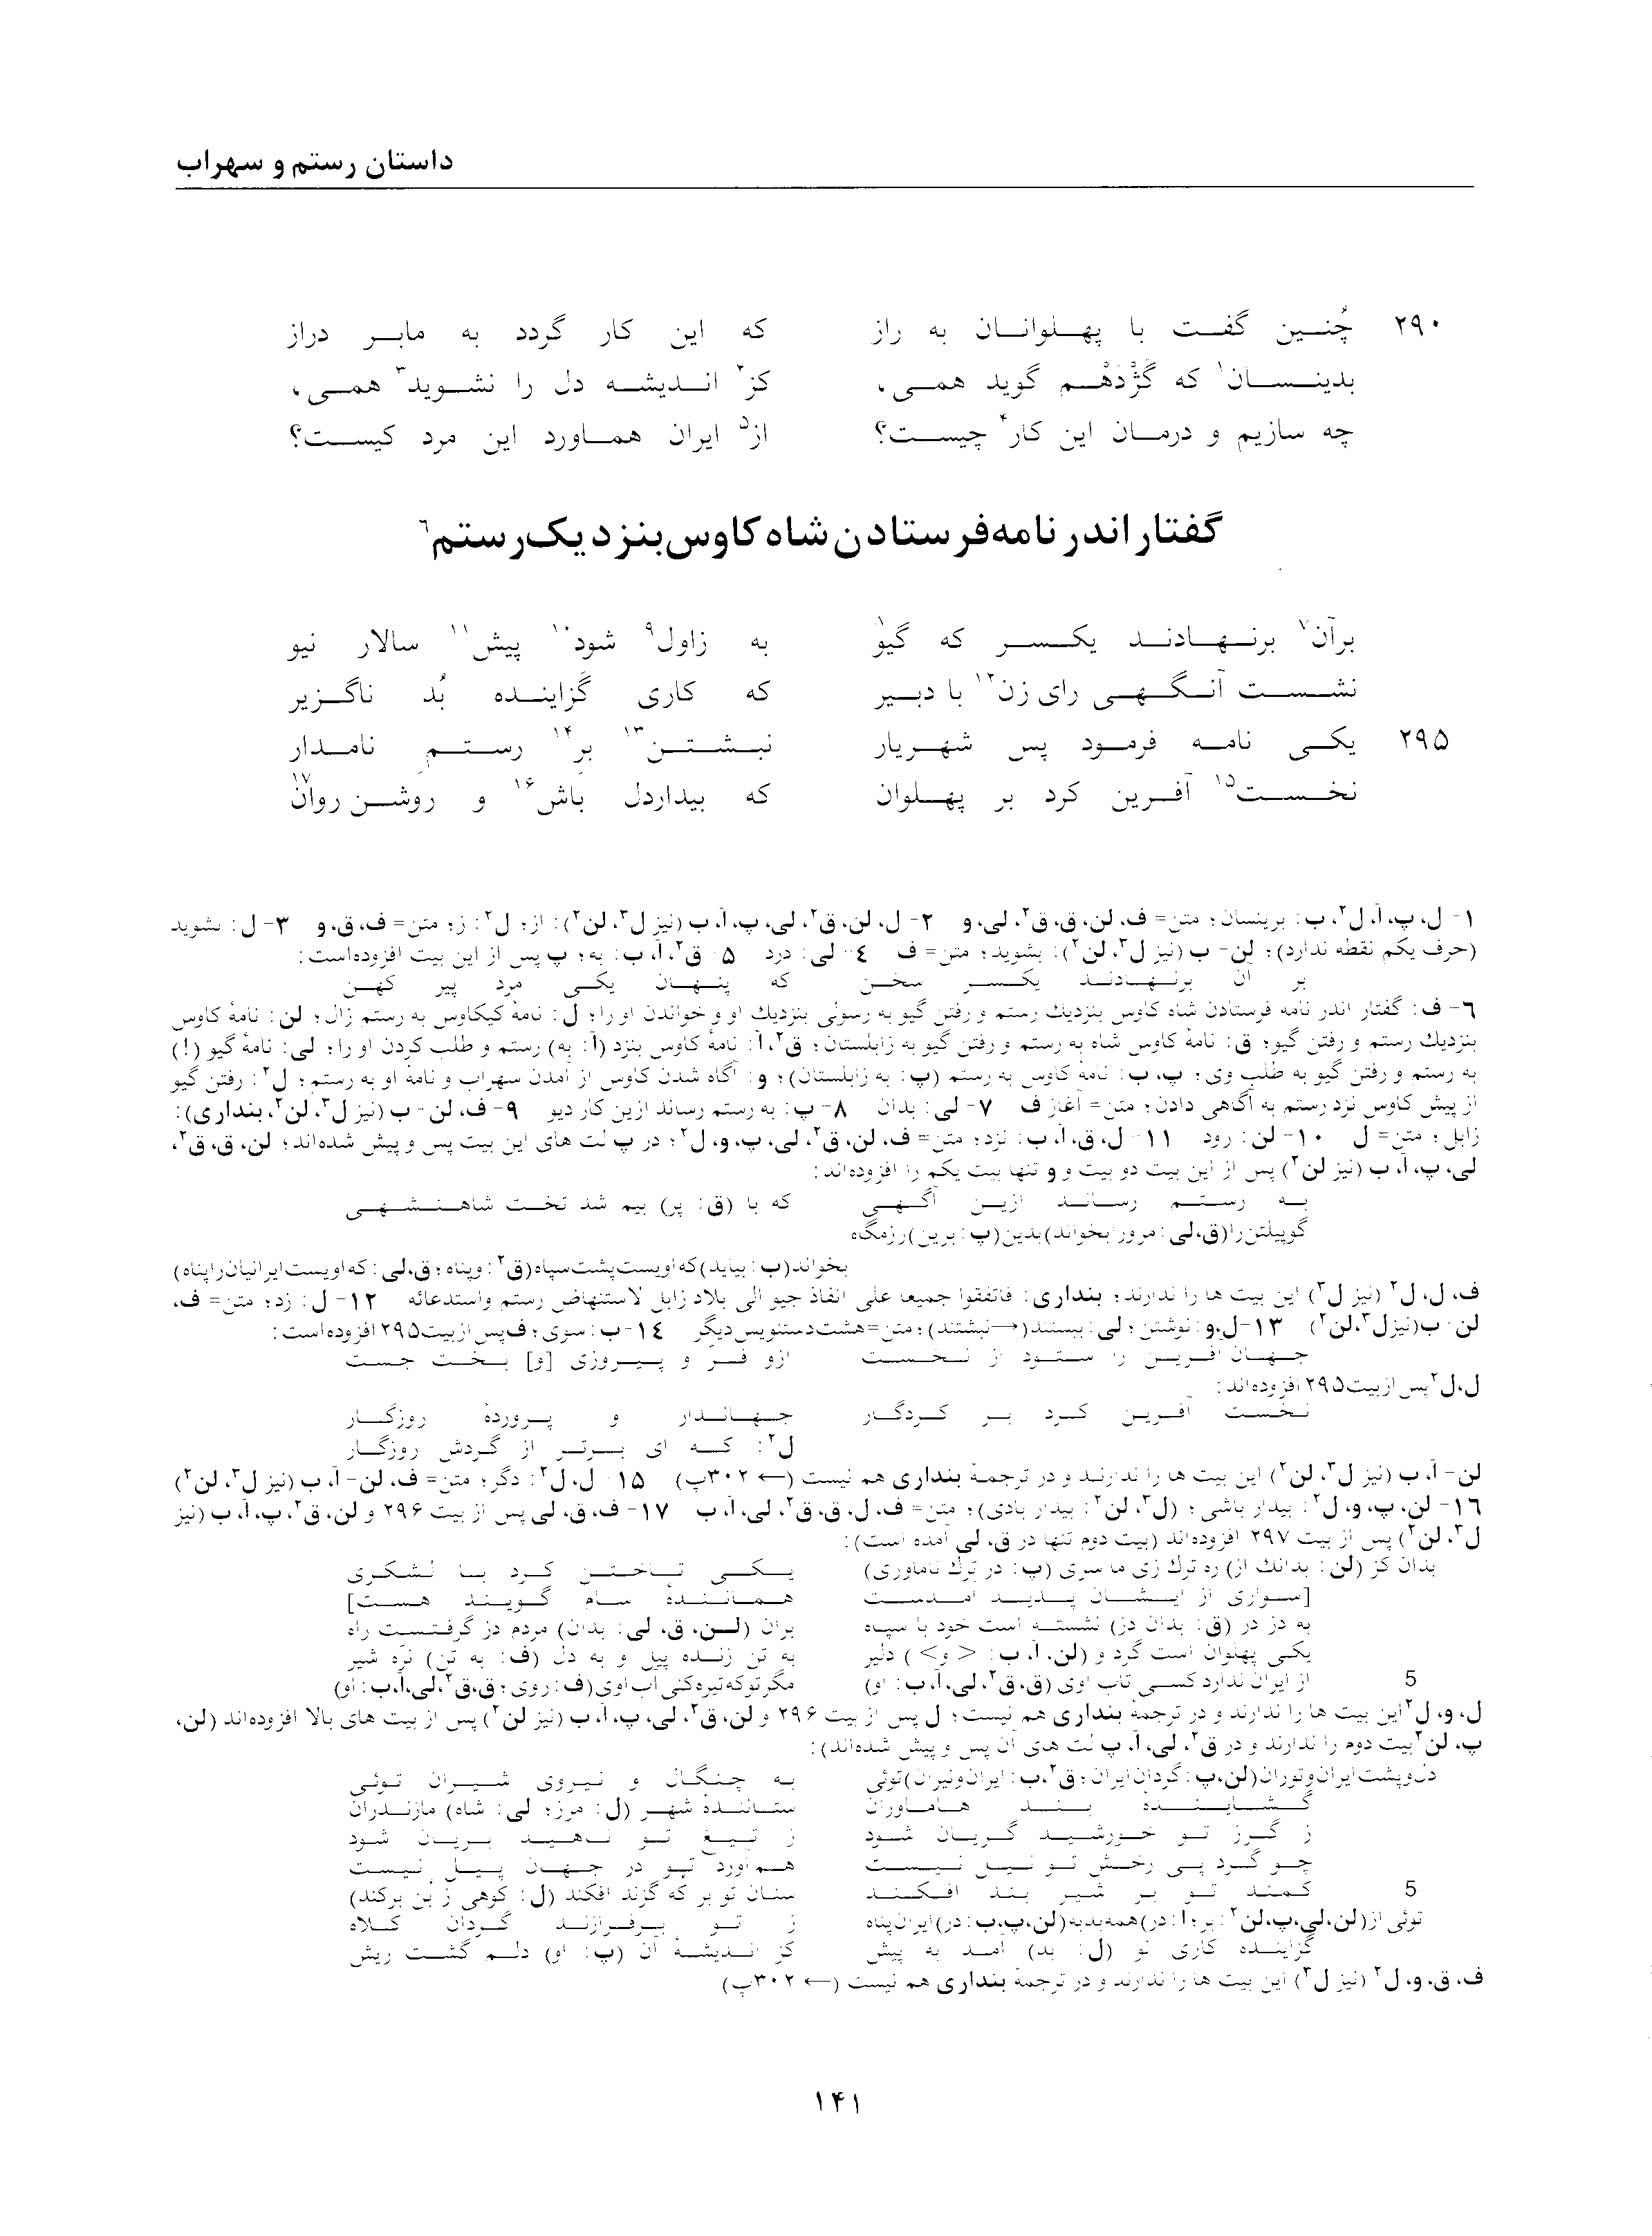 داستان رستم و سهراب
۲۹۰ چُنین گفت با پهلوانان به راز که این کار گردد به مابر دراز
بدینسان¹ که گَژْدَهْم گوید همی، کز² اندیشه دل را نشوید³ همی،
چه سازیم و درمان این کار⁴ چیست؟ از⁵ ایران هماورد این مرد کیست؟
گفتار اندر نامه فرستادن شاه کاوس بنزدیک رستم⁶
برآن⁷ برنهادند یکسر که گیو⁸ به زاول⁹ شود¹⁰ پیش¹¹ سالار نیو
نشست آنگهی رای زن¹² با دبیر که کاری گزاینده بُد ناگزیر
۲۹۵ یکی نامه فرمود پس شهریار نبشتن¹³ بر¹⁴ رستم نامدار
نخست¹⁵ آفرین کرد بر پهلوان که بیداردل باش¹⁶ و روشن روان¹⁷
۱- ل، پ، آ، ل²، ب: برینسان؛ متن= ف، لن، ق، ق²، لی، و ۲- ل، لن، ق²، لی، پ، آ، ب (نیز ل³، لن²): از؛ ل²: ز؛ متن= ف، ق، و ۳- ل: بشوید
(حرف یکم نقطه ندارد)؛ لن- ب (نیز ل³، لن²): بشوید؛ متن= ف ٤- لی: درد ۵- ق²، آ، ب: به؛ پ پس از این بیت افزوده است:
بر آن برنهادند یکسر سخن که پنهان یکی مرد پیر کهن
٦- ف: گفتار اندر نامه فرستادن شاه کاوس بنزدیك رستم و رفتن گیو به رسولی بنزدیك او و خواندن او را؛ ل: نامهٔ کیکاوس به رستم زال؛ لن: نامهٔ کاوس
بنزدیك رستم و رفتن گیو؛ ق: نامهٔ کاوس شاه به رستم و رفتن گیو به زابلستان؛ ق²، آ: نامهٔ کاوس بنزد (آ: به) رستم و طلب کردن او را؛ لی: نامهٔ گیو (!)
به رستم و رفتن گیو به طلب وی؛ پ، ب: نامهٔ کاوس به رستم (پ: به زابلستان)؛ و: آگاه شدن کاوس از آمدن سهراب و نامهٔ او به رستم؛ ل²: رفتن گیو
از پیش کاوس نزد رستم به آگاهی دادن؛ متن= آغاز ف ۷- لی: بدان ۸- پ: به رستم رساند ازین کار دیو ۹- ف، لن- ب (نیز ل³، لن²، بنداری):
زابل؛ متن= ل ۱۰- لن: رود ۱۱- ل، ق، آ، ب: نزد؛ متن= ف، لن، ق²، لی، پ، و، ل²؛ در پ لت های این بیت پس و پیش شده اند؛ لن، ق، ق²،
لی، پ، آ، ب (نیز لن²) پس از این بیت دو بیت و و تنها بیت یکم را افزوده اند:
به رستم رساند ازین آگهی که با (ق: پر) بیم شد تخت شاهنشهی
گو پیلتن را (ق، لی: مرورا بخواند) بدین (پ: برین) رزمگاه
بخواند (ب: بیاید) که اویست پشت سپاه (ق²: و پناه؛ ق، لی: که اویست ایرانیان را پناه)
ف، ل، ل² (نیز ل³) این بیت ها را ندارند؛ بنداری: فاتفقوا جمیعا علی انفاذ جیو الی بلاد زابل لاستنهاض رستم واستدعائه ۱۲- ل: زد؛ متن= ف،
لن- ب (نیز ل³، لن²) ۱۳- ل، و: نوشتن؛ لی: ببستند (→ نبشتند)؛ متن= هشت دستنویس دیگر ١٤- ب: سوی؛ ف پس از بیت ۲۹۵ افزوده است:
جهان آفرین را ستود از نخست ازو فر و پیروزی [و] بخت جست
ل، ل² پس از بیت ۲۹۵ افزوده اند:
نخست آفرین کرد بر کردگار جهاندار و پروردهٔ روزگار
ل²: که ای برتر از گردش روزگار
لن- آ، ب (نیز ل³، لن²) این بیت ها را ندارند و در ترجمهٔ بنداری هم نیست (← ۳۰۲پ) ۱۵- ل، ل²: دگر؛ متن= ف، لن- آ، ب (نیز ل³، لن²)
۱٦- لن، پ، و، ل²: بیدار باشی؛ (ل³، لن²: بیدار بادی)؛ متن= ف، ل، ق، ق²، لی، آ، ب ۱۷- ف، ق، لی پس از بیت ۲۹۶ و لن، ق²، پ، آ، ب (نیز
ل³، لن²) پس از بیت ۲۹۷ افزوده اند (بیت دوم تنها در ق، لی آمده است):
بدان کز (لن: بدانك از) ره ترك زی ما سری (پ: در ترك ناماوری) یکی تاختن کرد با لشکری
[سواری از ایشان پدید آمدست همانندهٔ سام گویند هست]
به دز در (ق: بدان دز) نشسته است خود با سپاه بران (لن، ق، لی: بدان) مردم دز گرفتست راه
یکی پهلوان است گرد و (لن، آ، ب: < و>) دلیر به تن زنده پیل و به دل (ف: به تن) نره شیر
5 از ایران ندارد کسی تاب اوی (ق، ق²، لی، آ، ب: او) مگر تو که تیره کنی آب اوی (ف: روی؛ ق، ق²، لی، آ، ب: او)
ل، و، ل² این بیت ها را ندارند و در ترجمهٔ بنداری هم نیست؛ ل پس از بیت ۲۹۶ و لن، ق²، لی، پ، آ، ب (نیز لن²) پس از بیت های بالا افزوده اند (لن،
پ، لن² بیت دوم را ندارند و در ق²، لی، آ، پ لت های آن پس و پیش شده اند):
دل و پشت ایران و توران (لن، پ: گردان ایران؛ ق²، ب: ایران و نیران) توئی به چنگال و نیروی شیران توئی
گشاینده بند هاماوران ستانندهٔ شهر (ل: مرز؛ لی: شاه) مازندران
ز گرز تو خورشید گریان شود ز تیغ تو ناهید بریان شود
چو گرد پی رخش تو نیل نیست هم آورد تو در جهان پیل نیست
5 کمند تو بر شیر بند افکند سنان تو بر که گزند افکند (ل: کوهی ز بن برکند)
توئی از (لن، لی، پ، لن²: بر؛ آ: در) همه بد به (لن، پ، ب: در) ایران پناه ز تو برفرازند گردان کلاه
گزاینده کاری نو (ل: بد) آمد به پیش کز اندیشهٔ آن (پ: او) دلم گشت ریش
ف، ق، و، ل² (نیز ل³) این بیت ها را ندارند و در ترجمهٔ بنداری هم نیست (← ۳۰۲پ)
۱۴۱